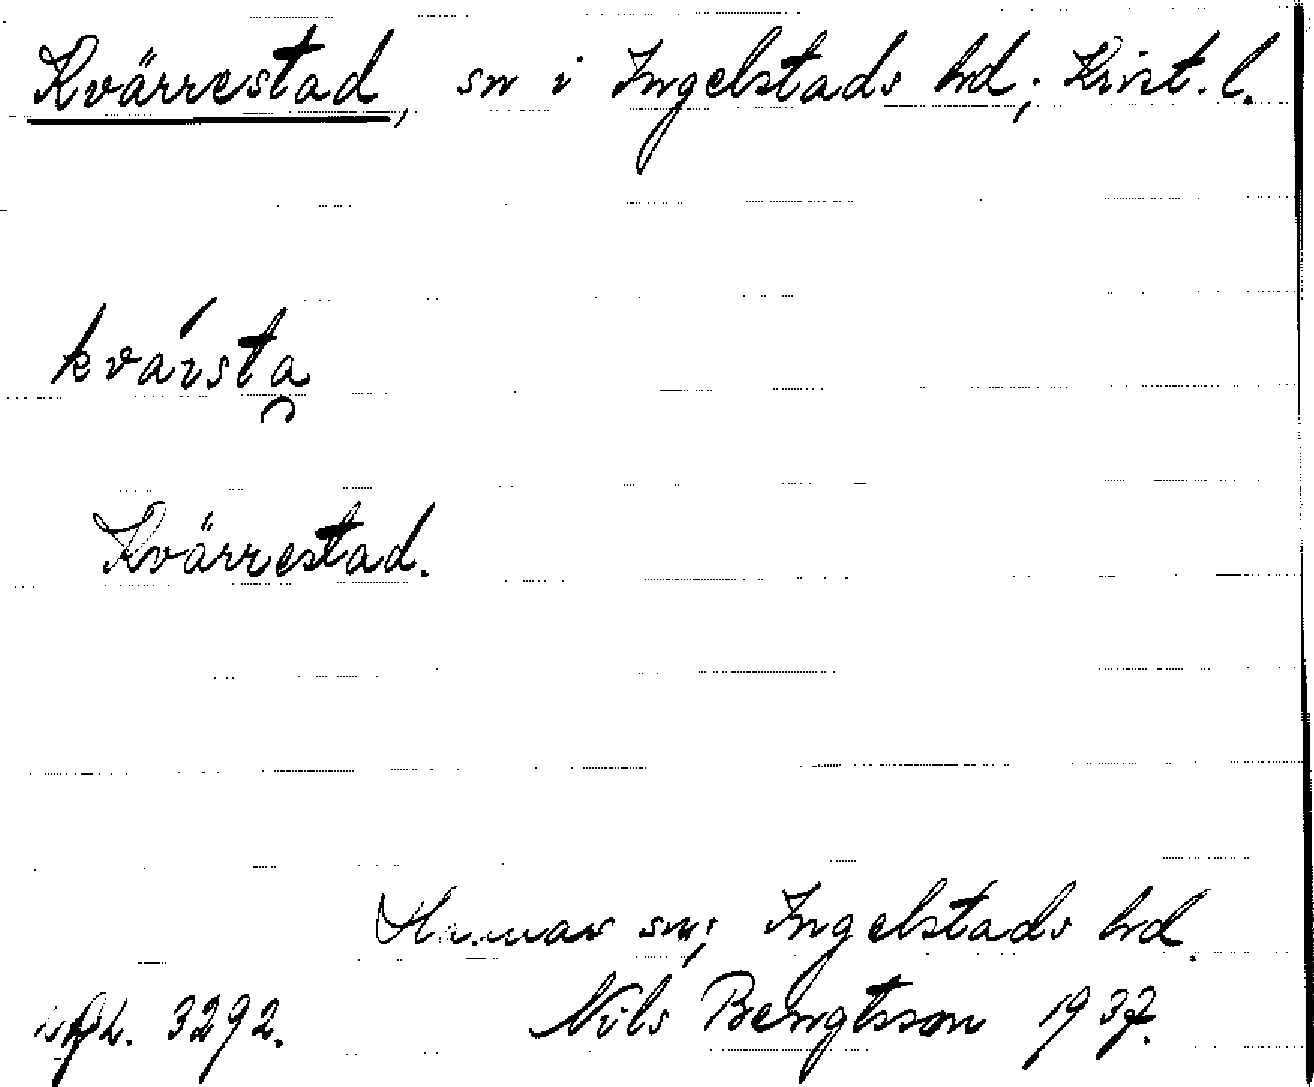 Kvärrestad, sn i Ingelstads hd; Krist. l.
kvársta
Kvärrestad.
sn; Ingelstads hd.
3292. Nils Bengtsson 1937.